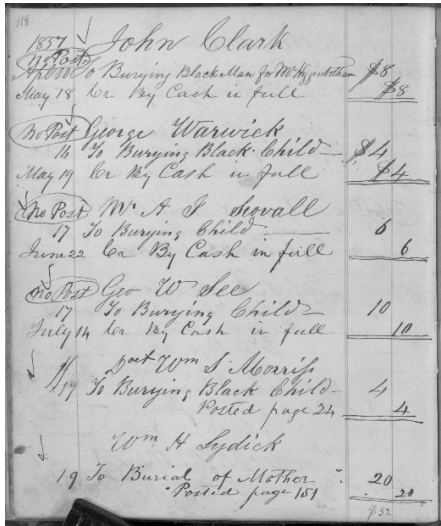 118
1857 John Clark
No Post
To Burying Black Man for Mr Higginbotham $8
May 18 Cr By Cash in full $8
No Post George Warwick
16 To Burying Black Child $4
May 19 Cr By Cash in full $4
No Post Mr A F Stovall
17 To Burying Child 6
June 22 Cr By Cash in full 6
No Post Geo W See
17 To Burying Child 10
July 14 Cr By Cash in full 10
Doct Wm S Morriss
17 To Burying Black Child 4
Posted page 24 4
Wm H Lydick
19 To Burial of Mother 20
Posted page 151 20
$52